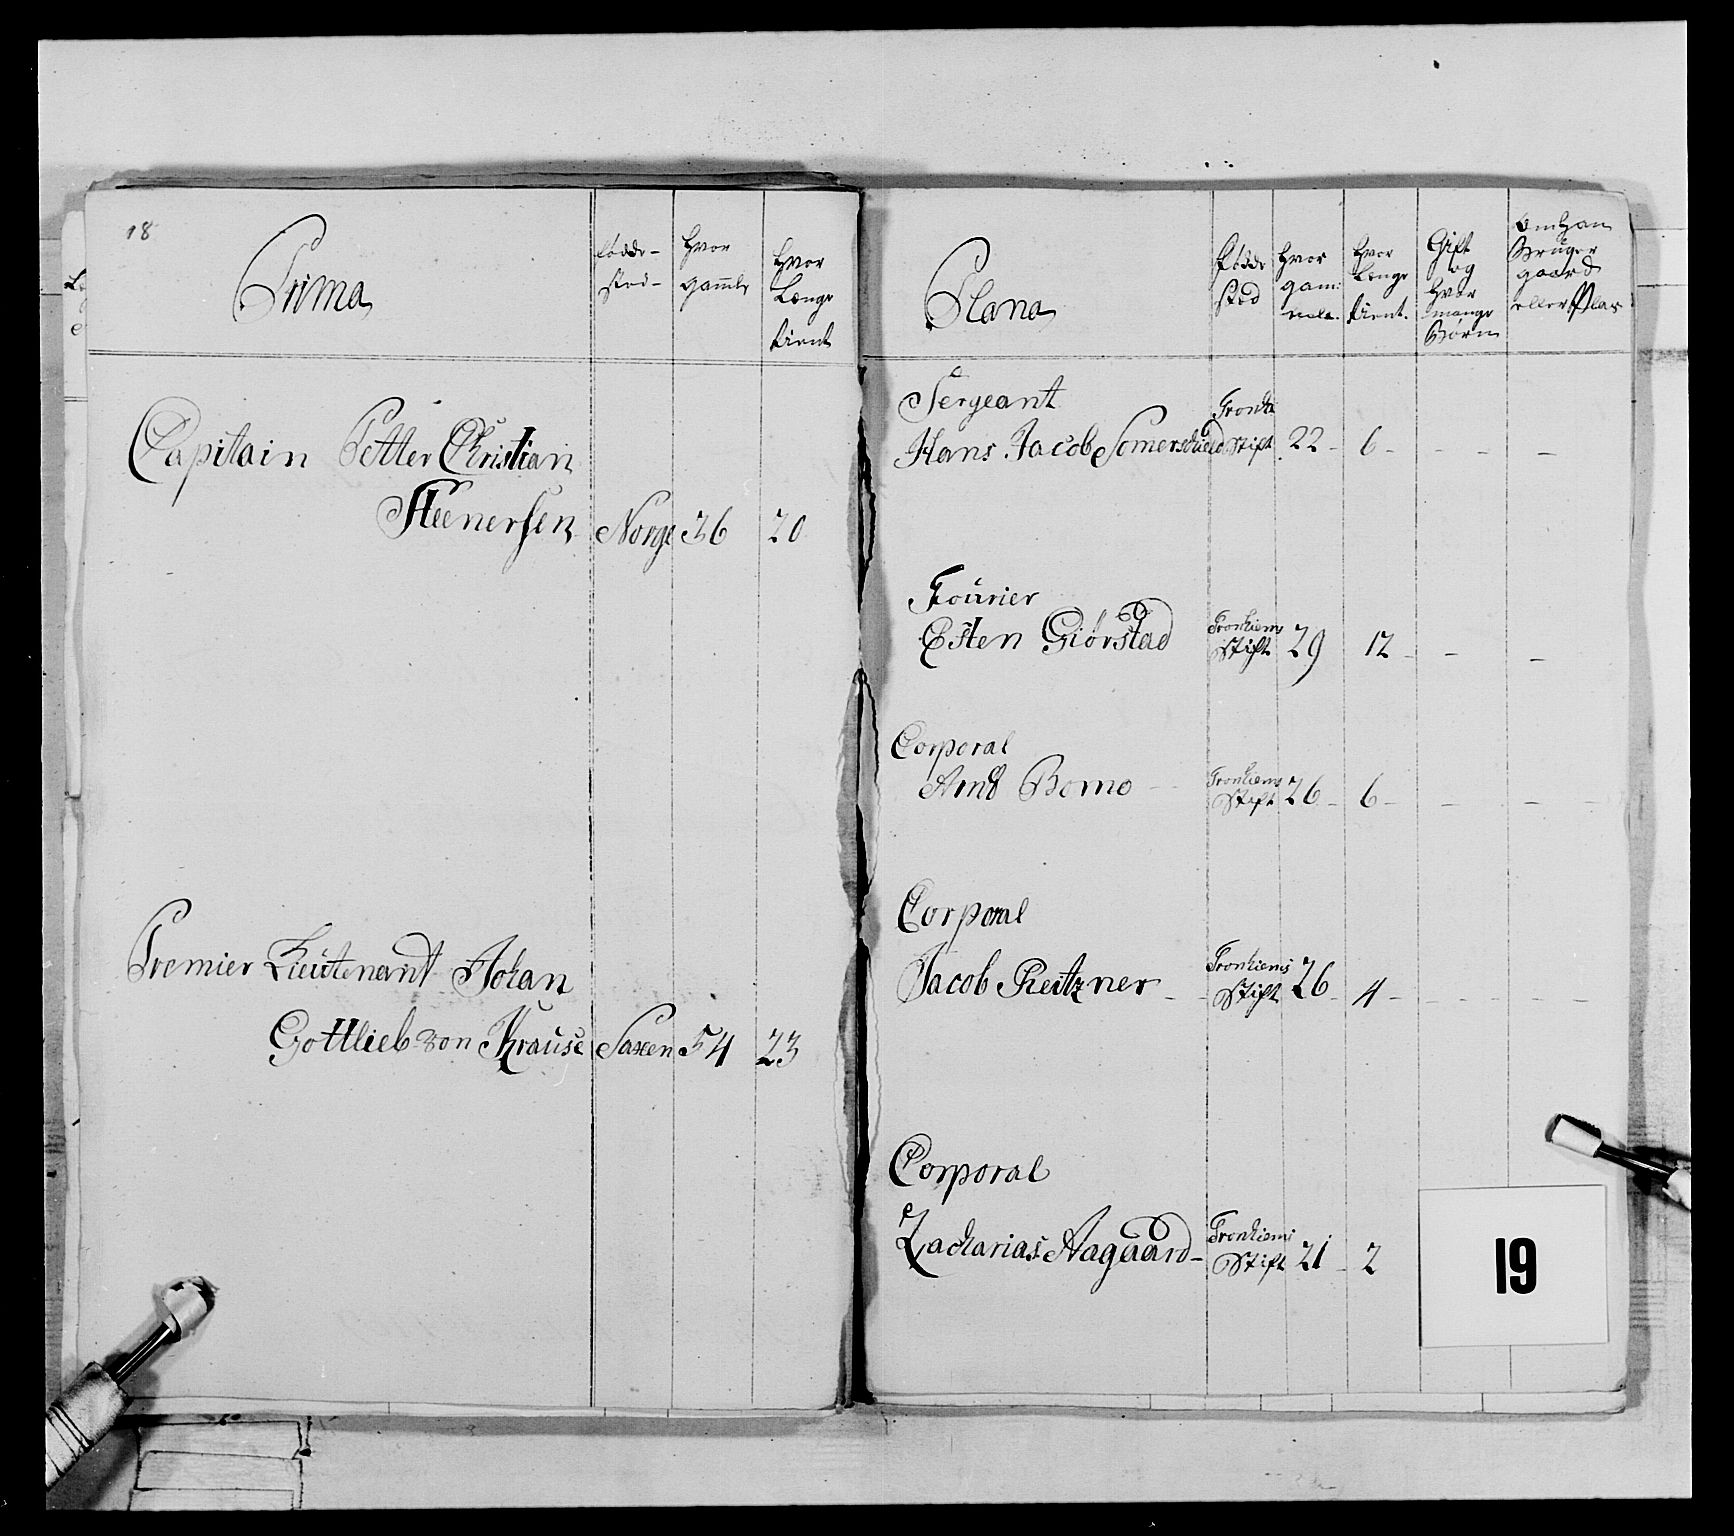 18
Prima
Fødde-
sted-
Hvor
gamle
Hvor
Længe
tient
Capitain Petter Christian
Steenersen Norge 36 20
Premier Lieutenant Johan
Gottlieb von Krause Saxen 54 23
Plana
Fødde
sted
Hvor
gam:
mel.
Hvor
Længe
tient.
Gift
og
Hvor
mange
Børn
Om han
Bruger
gaard
eller Plas
Sergeant
Hans Jacob Somerschield Tronh Stift 22 - 6 - - - -
Fourier
Esten Giörstad Tronhiems Stift 29 12 - - -
Corporal
Arnt Bomo Tronhiems Stift 26 - 6 - - - -
Corporal
Jacob Reitzner - - Tronhiems Stift 26 - 4 - - - - - -
Corporal
Zacharias Aagaard - Tronhiems Stift 21 - 2
19